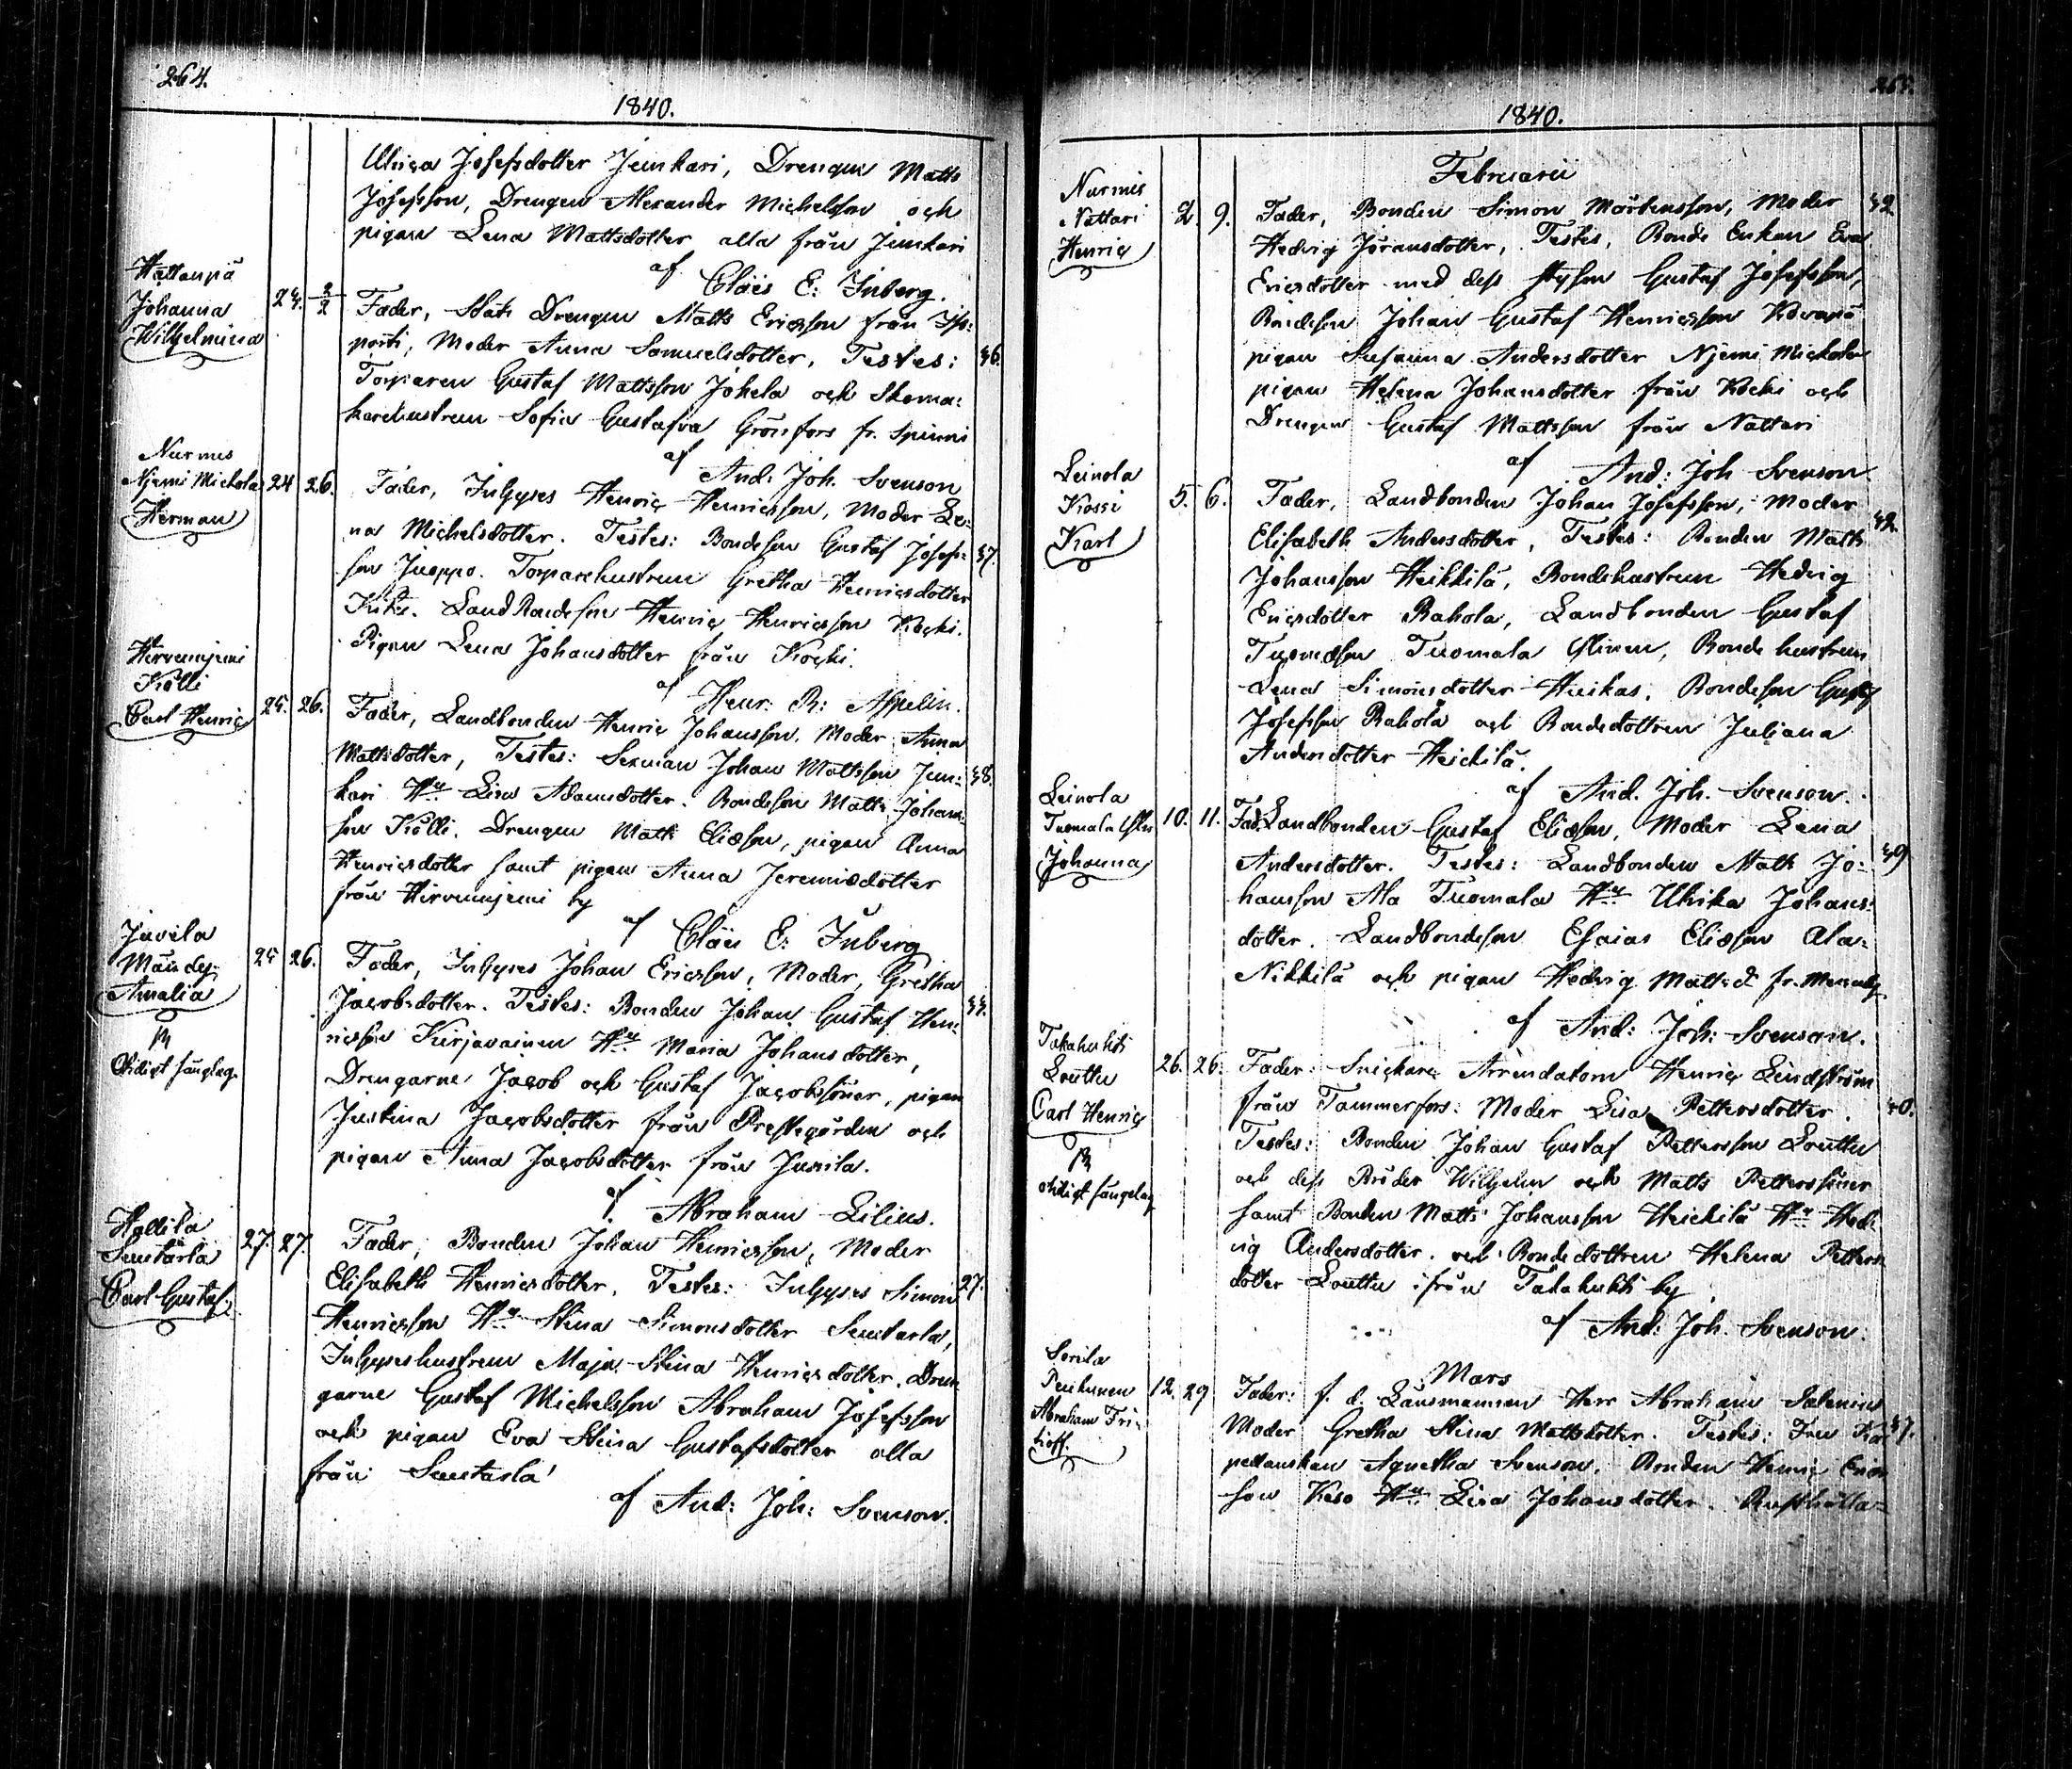 264.
1840.
Ulrica Josefsdotter Junkari, Drengen Matts
Josefsson, Drengen Alexander Michelsson och
pigan Lena Mattsdotter alla från Junkari
af Claës E: Inberg.
Hattanpä
Johanna
Wilhelmina
24. 2/2
Fader, Stats Drengen Matts Ericsson från
porti, Moder Anna Samuelsdotter, Testes: 36.
Torparen Gustaf Mattsson Jokela och Skoma:
karehustrun Sofia Gustafva Grönfors fr. Spinni
af And. Joh. Svenson
Nurmes
Njemi Mickola
Herman
24 26.
Fader, Inhyses Henric Henricsson, Moder Le:
na Michelsdotter. Testes: Bondeson Gustaf Josefs: 37.
son Juoppo. Torparehustrun Gretha Henricsdotter
LandBondeson Henric Henricsson Kocki.
Pigan Lena Johansdotter från Kocki.
af Henr: R: Appelin.
Hirvenjemi
Kölli
Carl Henric
25. 26.
Fader, Landbonden Henric Johansson. Moder Anna
Mattsdotter, Testes: Sexman Johan Mattsson Jun: 38.
kari Hu Lisa Adamsdotter. Bondeson Matts Johans
son Kölli. Drengen Matts Eliæson, pigan Anna
Henricsdotter samt pigan Anna Jeremiædotter
från Hirvenjemi by
af Claës E: Inberg
Juvela
Amalia
Oächt sängelag.
25 26.
Fader, Inhyses Johan Ericsson, Moder, Gretha
Jacobsdotter. Testes: Bonden Johan Gustaf Hen:
ricsson Kirjavainen Hu Maria Johansdotter,
Drengarne Jacob och Gustaf Jacobssöner, pigan
Justina Jacobsdotter från Prestgården och
pigan Anna Jacobsdotter från Junila.
af Abraham Lilius.
Hollila
Sentarla
Carl Gustaf
27. 27.
Fader, Bonden Johan Henricsson, Moder
Elisabeth Henricsdotter. Testes: Inhyses Simon 27.
Henricsson Hu Stina Simonsdotter Sentarla,
Inhyseshustrun Maja Stina Henricsdotter. Dren
garne Gustaf Michelsson Abraham Josefsson
och pigan Eva Stina Gustafsdotter alla
från Sentarla
af And: Joh: Svenson.
265.
1840.
Februarii
Nurmis
Nattari
Henric
2. 9.
Fader, Bonden Simon Mårtensson, Moder 32
Hedvig Jöransdotter, Testes, Bonde Enkan Eva
Ericsdotter med dess styfson Gustaf Josefsson,
Bondeson Johan Gustaf Henricsson
pigan Susanna Andersdotter Njemi Mickola
pigan Helena Johansdotter från Kocki och
Drengen Gustaf Mattsson från Nattari
af And: Joh Svenson.
Leinola
Kossi
Karl
5. 6.
Fader, Landbonden Johan Josefsson, Moder
Elisabeth Andersdotter, Testes: Bonden Matts
Johansson Heikkilä, Bondehustrun Hedvig
Ericsdotter Rahola, Landbonden Gustaf
Tuomala Olinen, Bonde hustrun
Lena Simonsdotter Huikas. Bondeson Gustaf
Josefsson Rahola och Bondedottren Juliana
Andersdotter Heickilä.
af And. Joh. Svenson.
Leinola
Tuomala
Johanna
10. 11.
Fad. Landbonden Gustaf Eliæson, Moder Lena
Andersdotter. Testes: Landbonden Matts Jo: 39
hansson Ala Tuomala Hu Ulrika Johans:
dotter. Landbondeson Esaias Eliæson Ala-
Nikkilä och pigan Hedvig Mattsd fr.
af And: Joh: Svenson.
Takahukti
Louttu
Carl Henric
Oächt sängelag
26. 26.
Fader: Snickare Arrendatorn Henric Lindström
från Tammerfors: Moder Lisa Pettersdotter. 40.
Testes: Bonden Johan Gustaf Pettersson Louttu
och dess Bröder Wilhelm och Matts Petterssöner
samt Bonden Matts Johansson Heickilä Hu Hed:
vig Andersdotter. och Bondedottren Helena Petters
dotter Louttu ifrån Takahukti by
af And: Joh. Svenson.
Mars
Sorila
Penhunen
Abraham Fri-
tioff.
12. 29
Fader: f. d. Länsmannen Herr Abraham Salenius
Moder Gretha Stina Mattsdotter. Testes: Fru Ka 37.
pellanskan Agnetha Svenson. Bonden Henric Erics
son Keso Hu Lisa Johansdotter. Rusthålla-